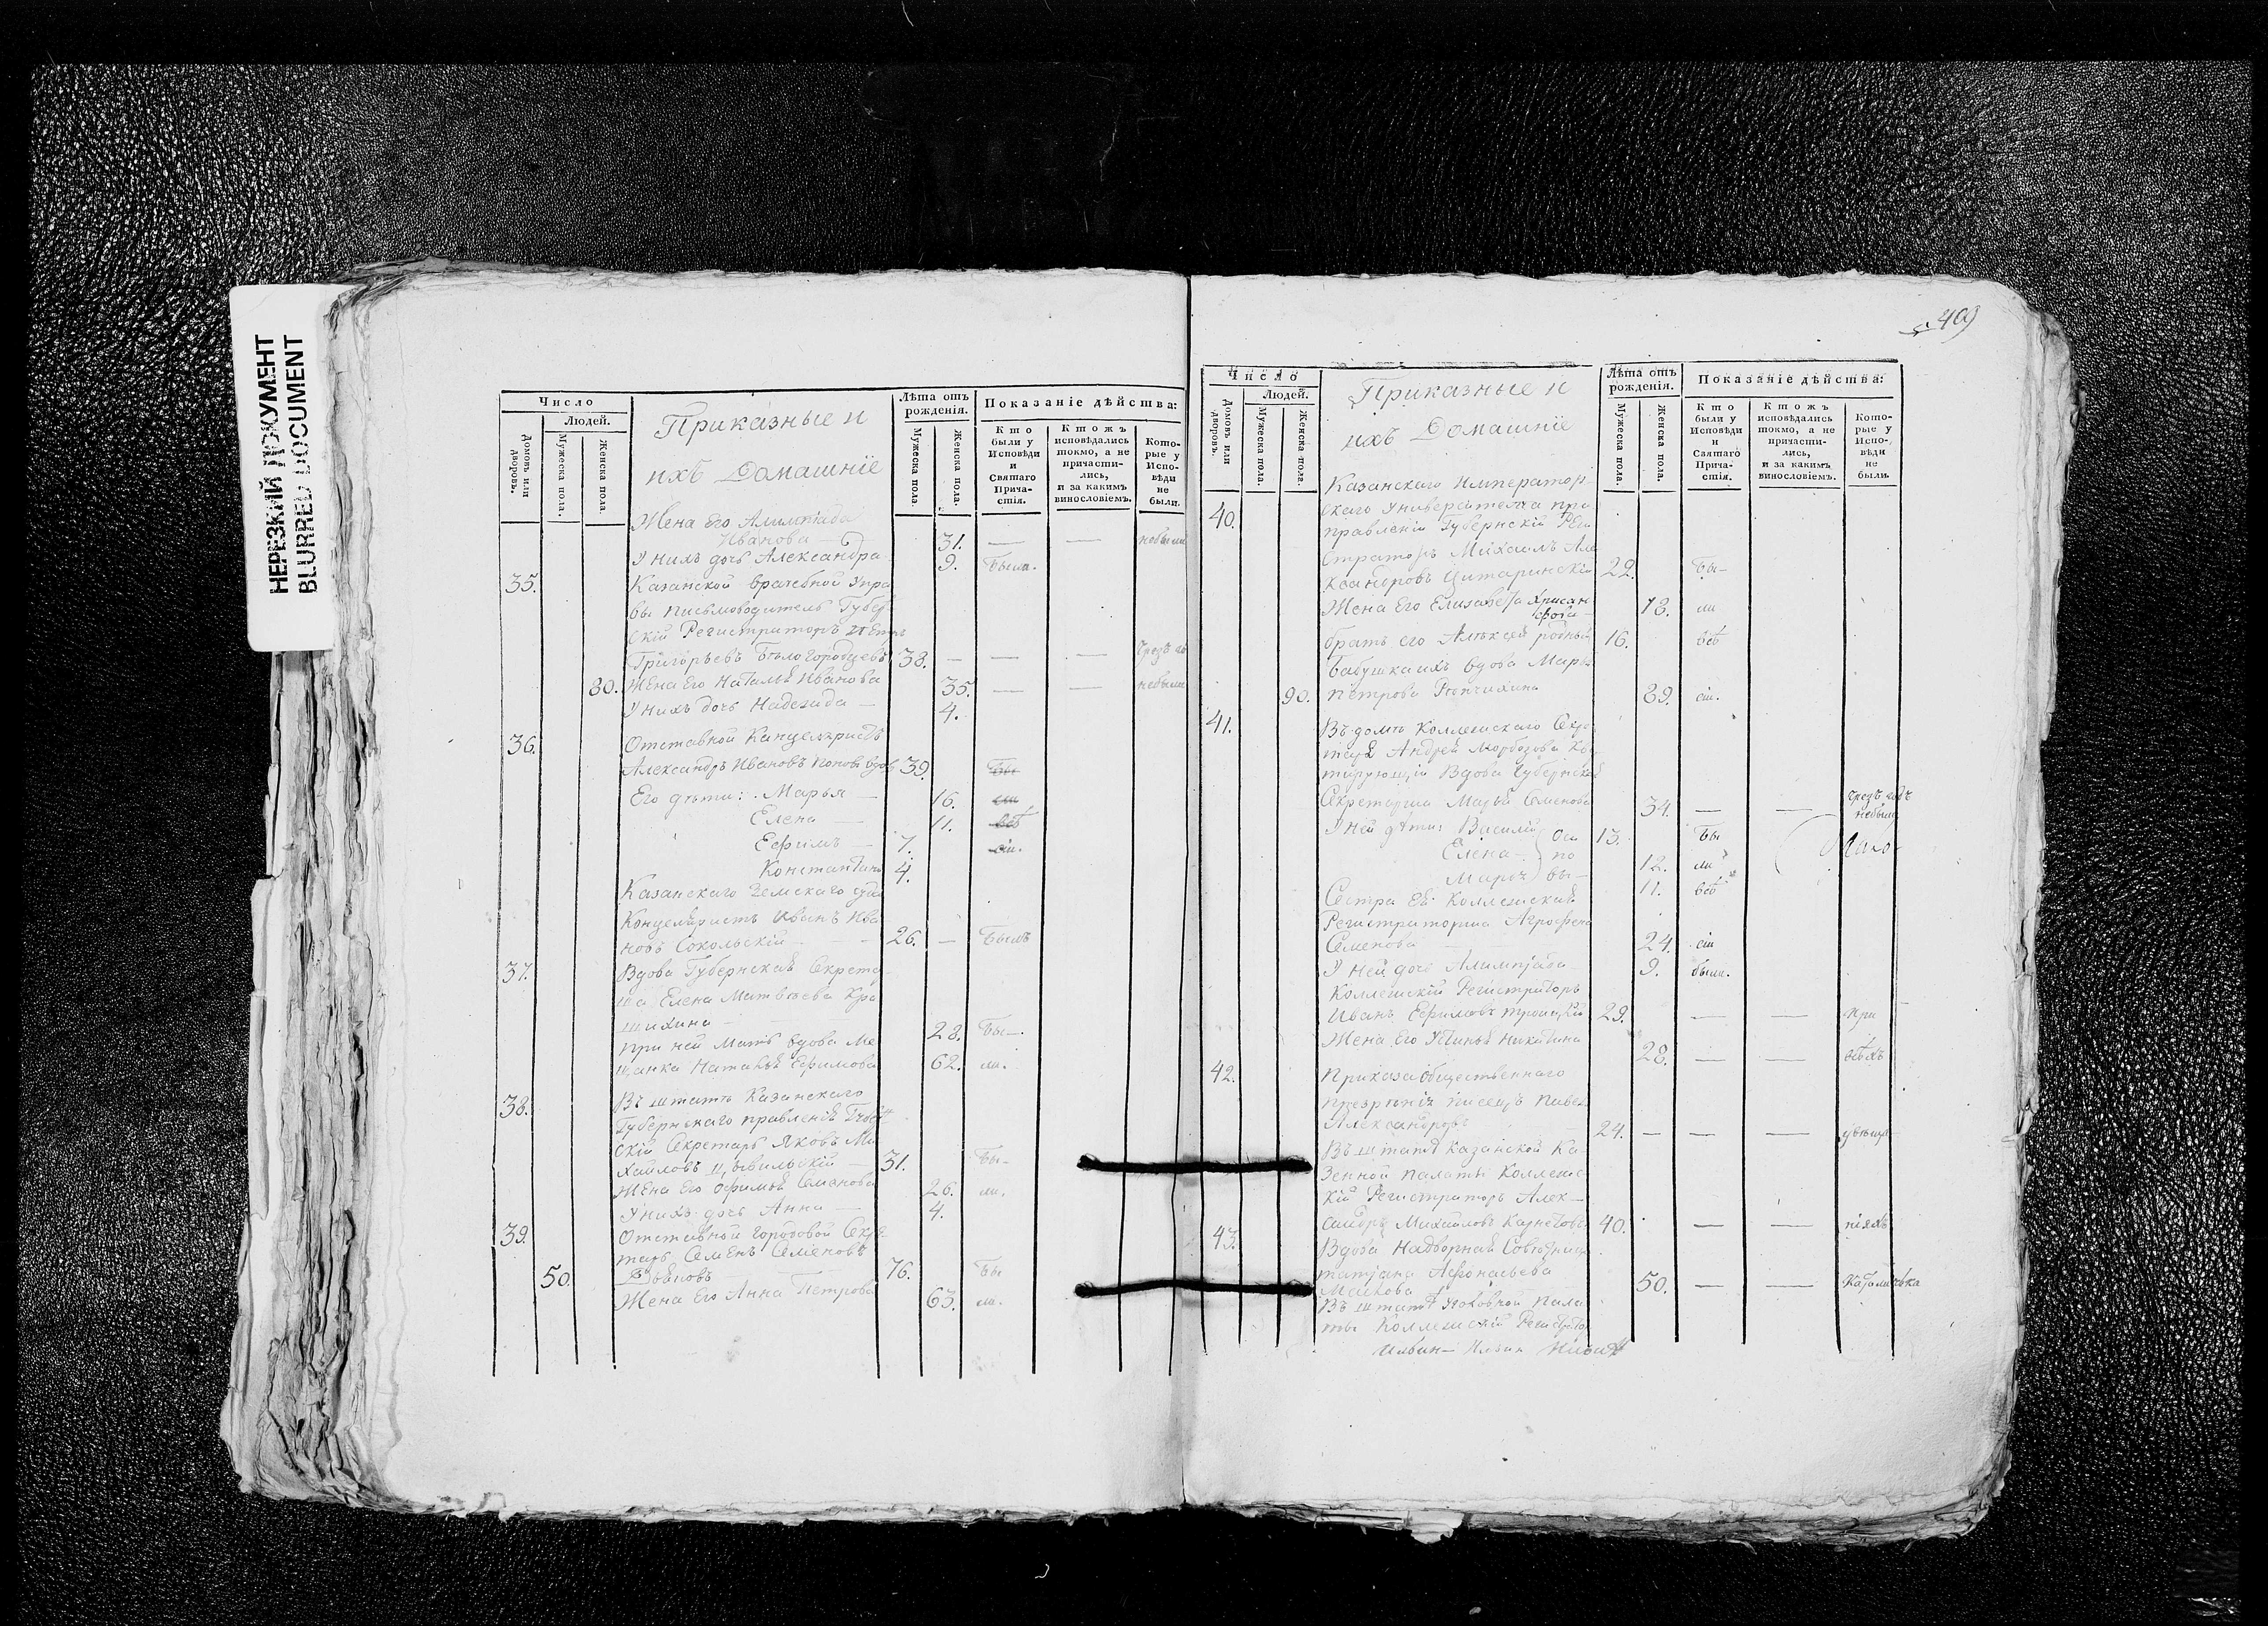 НЕРЕЗКИЙ ДОКУМЕНТ
BLURRED DOCUMENT
Число
Людей.
Домовъ или дворовъ.
Мужеска пола.
Женска пола.
Приказные и
ихъ Домашнїе
Лѣта отъ рожденія.
Мужеска пола.
Женска пола.
Показаніе дѣйства:
Кто были у Исповѣди и Святаго Прича-стія.
Ктожъ исповѣдались токмо, а не причасти-лись, и за какимъ винословіемъ.
Кото-рые у Испо-вѣди не были.
Жена Его Алимпіада
Иванова 31. — — небыли
У нихъ дочь Александра 9. была.
35. Казанской врачебной Упра
вы письмоводитель Губер
скій Регистраторъ Петръ
Григорьевъ Бѣлогородцевъ 38. — — —
30. Жена Его Наталья Иванова 35. — — небыли
У нихъ дочь Надежда — 4.
36. Отставной Канцеляристъ
Александръ Ивановъ Поповъ вдовъ 39. бы
Его дѣти: Марья — 16. ли
Елена — 11. всѣ
Ефимъ — 7. сіи.
Константинъ 4.
Казанскаго Земскаго суда
Концеляристъ Иванъ Ива
новъ Сокольскій — 26. — былъ
37. Вдова Губернская Секрета
ша Елена Матвѣева Кра
шихина — 28. бы—.
При ней Мать вдова Ме
щанка Наталья Ефимова 62. ли.
38. Въ штатѣ Казанскаго
Губернскаго правленія Губер
скій Секретарь Яковъ Ми
хайловъ Цывильскій — 31. бы—
Жена Его Офимья Семенова 26. ли.
У нихъ дочь Анна — 4.
39. Отставной городовой Секре
тарь Семенъ Семеновъ
50. 76. бы
Жена Его Анна Петрова 63. ли.
409
Число
Людей.
Домовъ или дворовъ.
Мужеска пола.
Женска пола.
Приказные и
ихъ Домашнїе
Лѣта отъ рожденія.
Мужеска пола.
Женска пола.
Показаніе дѣйства:
Кто были у Исповѣди и Святаго Прича-стія.
Ктожъ исповѣдались токмо, а не причасти-лись, и за какимъ винословіемъ.
Кото-рые у Испо-вѣди не были.
Казанскаго Император
40. скаго Университета при
правленіи Губернскій Реги
страторъ Михаилъ Але
ксандровъ Цитаринскій 22. бы—
Жена Его Елизавета Хрисан
фова 18. ли
братъ его Алѣксѣй родный 16. всѣ
бабушка ихъ вдова Марья
90. Петрова 89. сіи.
41. Въ домѣ Коллежскаго Секре
таря Андрея Морозова Квар
тирующій Вдова Губернская
Секретарша Марья Семенова 34. — — чрезъ годъ небыли
У ней дѣти: Василій Оси 13. бы
Елена по 12. ли
Марья вы— 11. всѣ
Сестра Ея Коллежская
Регистраторша Агрофена
Семенова 24. сіи
У ней дочь Алимпіада 9. были.
Коллежскій Регистраторъ
Иванъ Ефимовъ Троицкій 29. — — при
Жена Его Устинья Никитина 28. — — всѣхъ
42. Приказа Общественнаго
презрѣнія писецъ Павел
Александровъ 24. — — —
Въ штатѣ Казанской Ка
зенной палаты Коллежс
кій Регистраторъ Алек—
сандръ Михайловъ Казнетовъ 40. — —
43. Вдова Надворная Совѣтница
татіана Афонасьева
Маикова 50. — — Католичька
Въ штатѣ Уголовной Пала
ты Коллежскій Регистрато